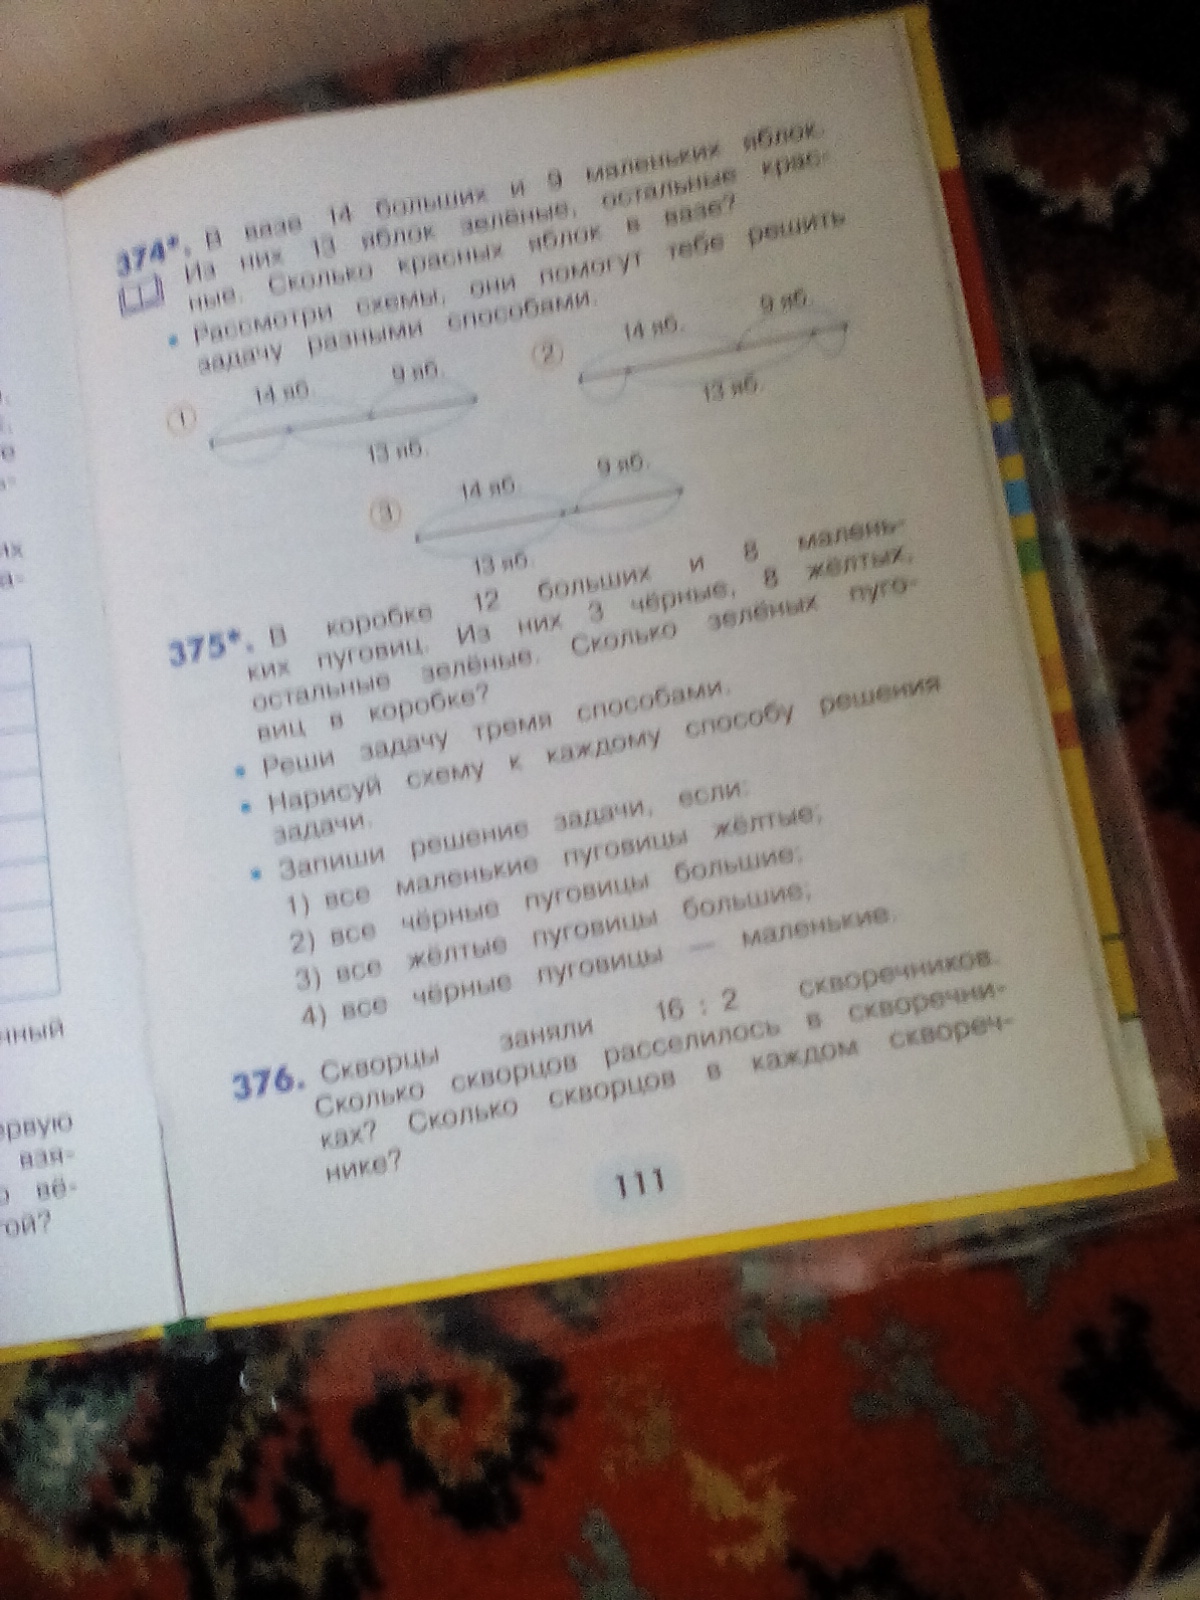 374*. В вазе 14 больших и 9 маленьких яблок.
Из них 13 яблок зелёные, остальные крас-
ные. Сколько красных яблок в вазе?
• Рассмотри схемы, они помогут тебе решить
задачу разными способами.
1 14 яб. 9 яб. 13 яб.
2 14 яб. 9 яб. 13 яб.
3 14 яб. 9 яб. 13 яб.
375*. В коробке 12 больших и 8 малень-
ких пуговиц. Из них 3 чёрные, 8 жёлтых,
остальные зелёные. Сколько зелёных пуго-
виц в коробке?
• Реши задачу тремя способами.
• Нарисуй схему к каждому способу решения
задачи.
• Запиши решение задачи, если:
1) все маленькие пуговицы жёлтые;
2) все чёрные пуговицы большие;
3) все жёлтые пуговицы большие;
4) все чёрные пуговицы — маленькие.
376. Скворцы заняли 16 : 2 скворечников.
Сколько скворцов расселилось в скворечни-
ках? Сколько скворцов в каждом сквореч-
нике?
111
нный
ервую
вяя-
вё-
гой?